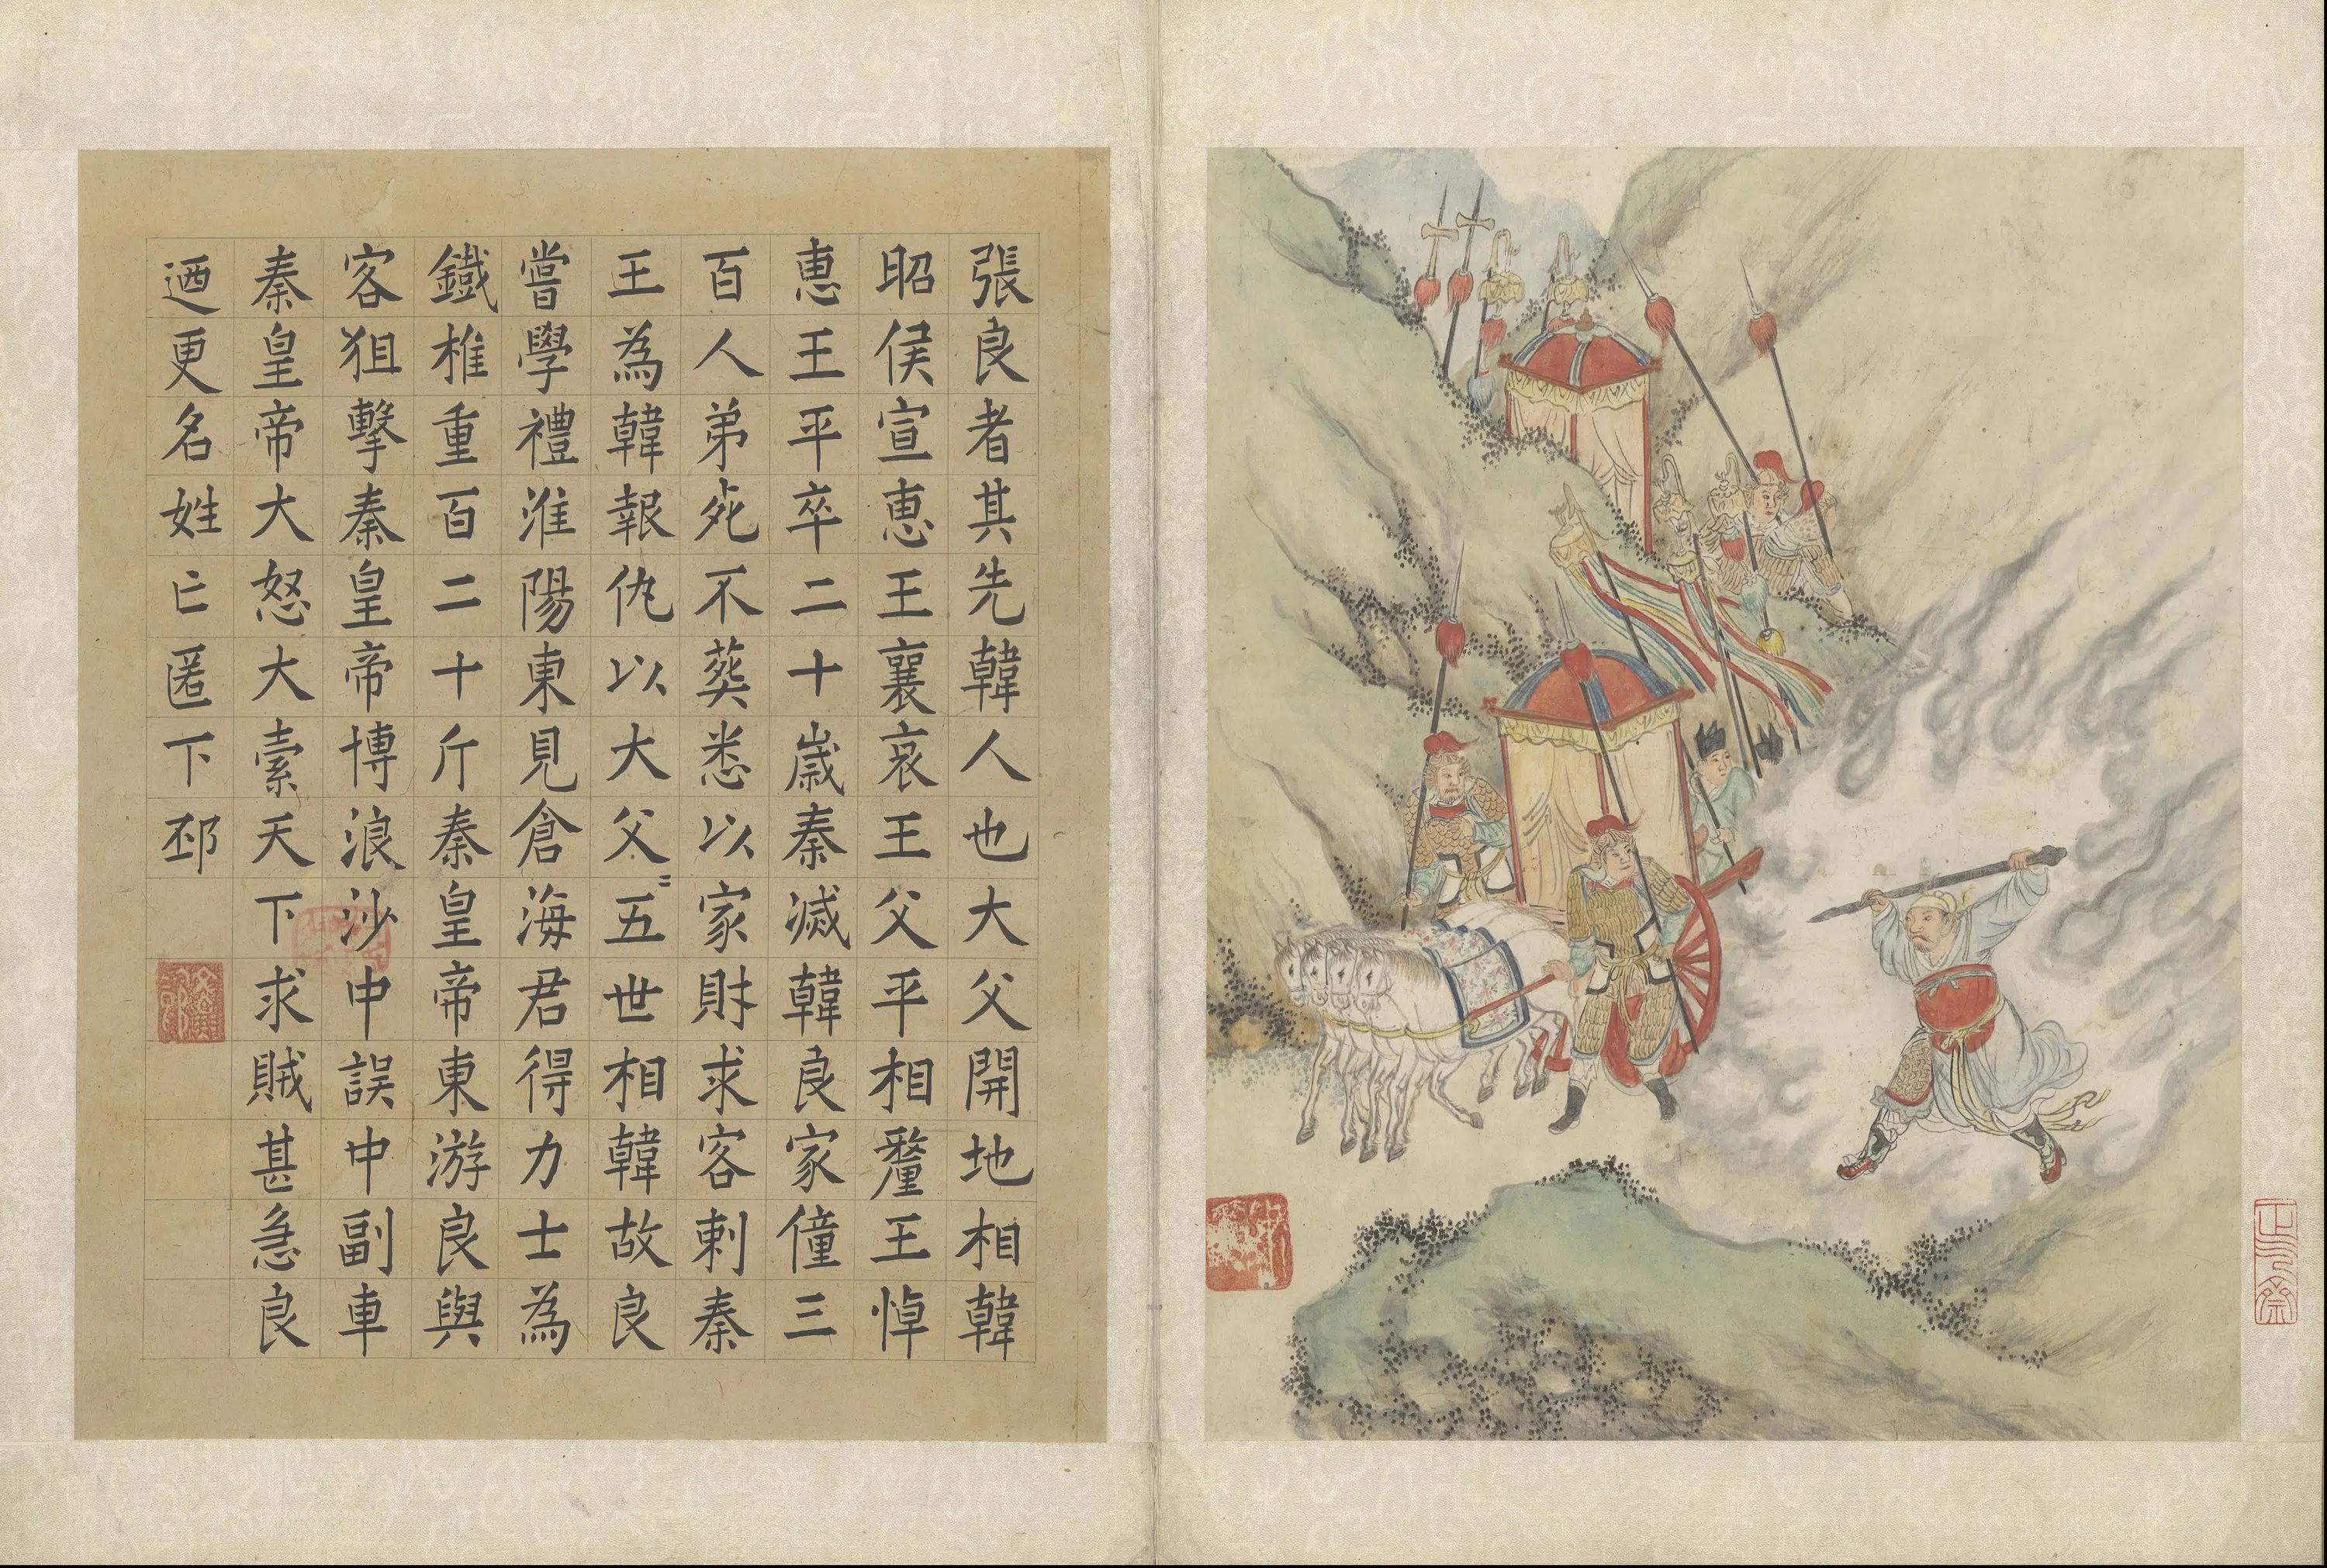 張良者其先韓人也大父開地相韓
昭侯宣惠王襄哀王父平相釐王悼
惠王平卒二十歲秦滅韓良家僮三
百人弟死不葬悉以家財求客刺秦
王為韓報仇以大父〻五世相韓故良
嘗學禮淮陽東見倉海君得力士為
鐵椎重百二十斤秦皇帝東游良與
客狙擊秦皇帝博浪沙中誤中副車
秦皇帝大怒大索天下求賊甚急良
迺更名姓亡匿下邳